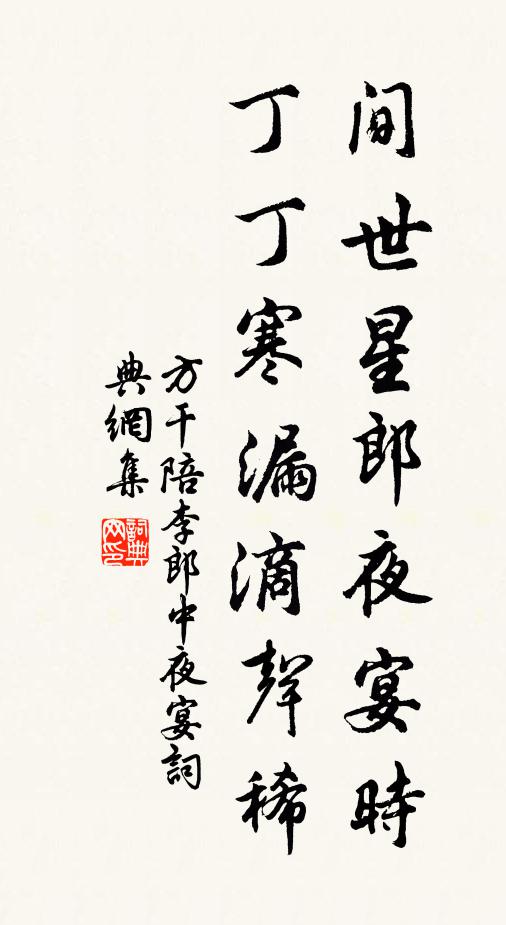 间世星郎夜宴時
丁丁寒漏滴聲稀
方干陪李郎中夜宴詞
典網集
詞典
网印